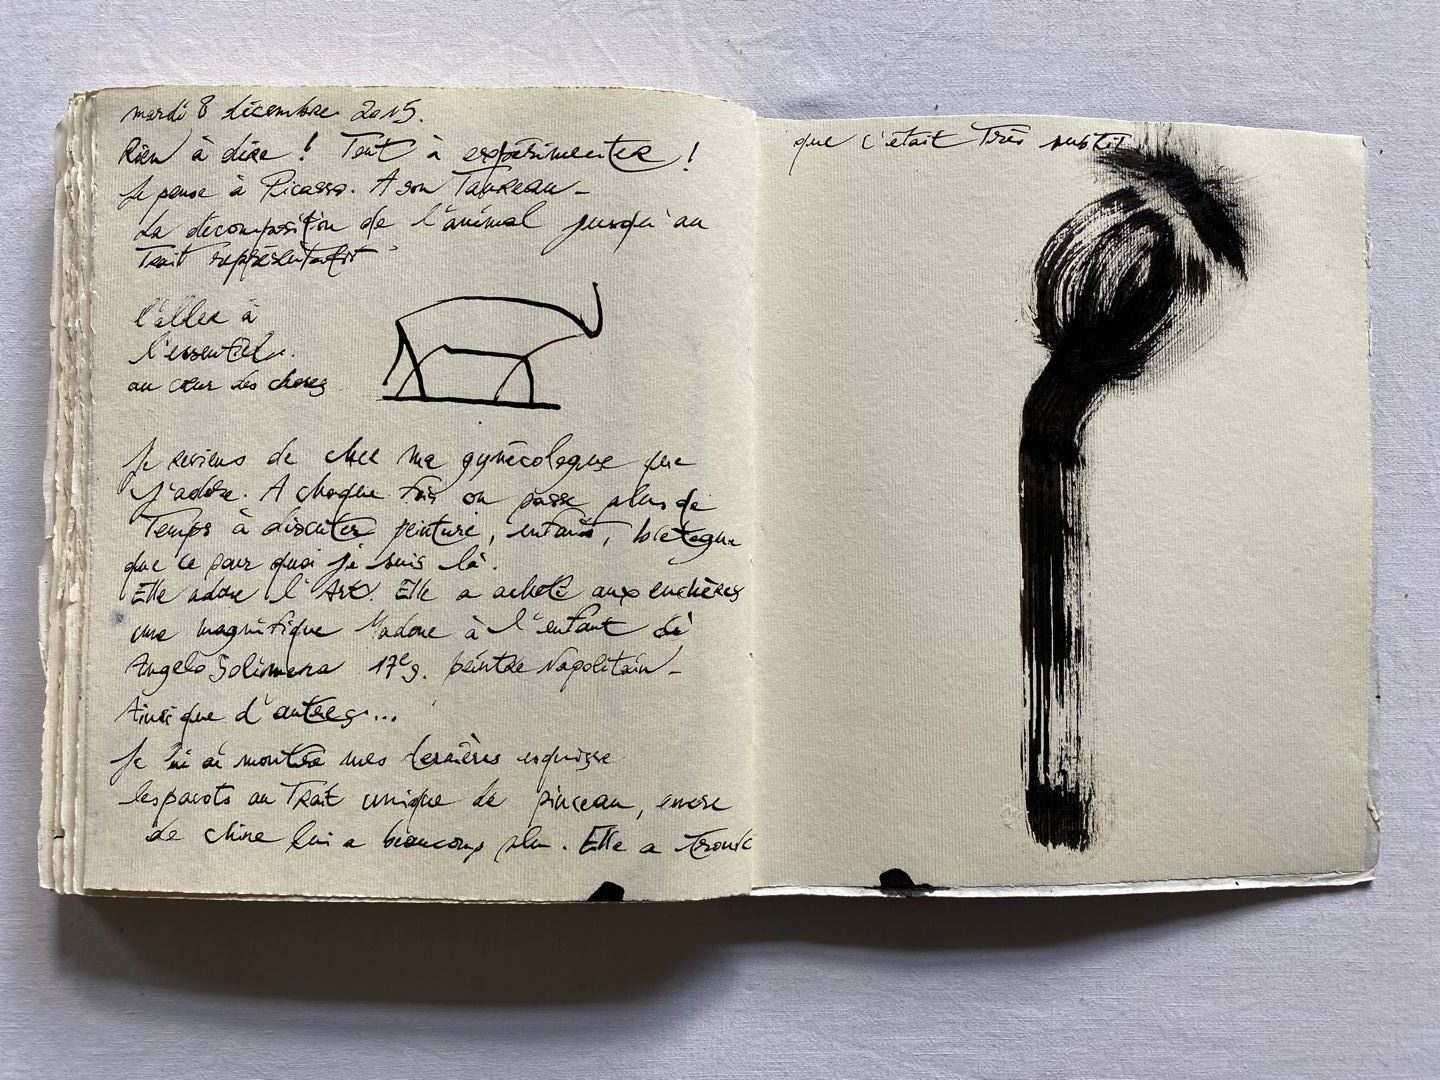 mardi 8 décembre 2015.
Rien à dire ! Tout à expérimenter !
Je pense à Picasso. A son Taureau -
La décomposition de l'animal jusqu'au
Trait représentatif
l'aller à
l'essentiel.
au cœur des choses
Je reviens de chez ma gynécologue que
j'adore. A chaque fois on passe plus de
Temps à discuter peinture, enfants, bretagne
que ce pour quoi je suis là.
Elle adore l'Art. Elle a acheté aux enchères
une magnifique Madone à l'enfant de
Angelo Solimena 17e s. peintre Napolitain -
Ainsi que d'autres...
Je lui ai montré mes dernières esquisse
les pavots au Trait unique de pinceau, encre
de chine lui a beaucoup plu. Elle a Trouvé
que c'était Très subtil